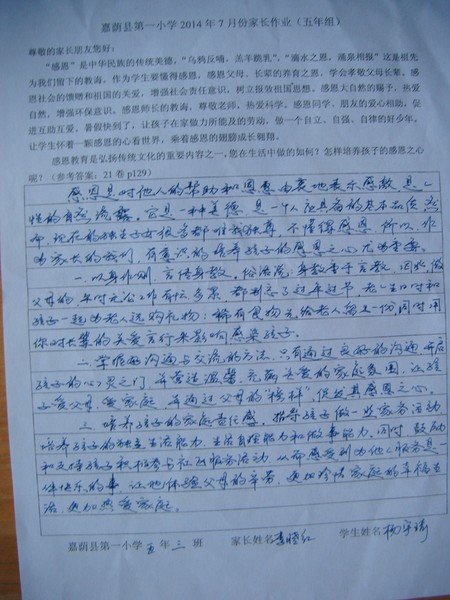 嘉荫县第一小学 2014 年 7 月份家长作业（五年组）
尊敬的家长朋友您好：
“感恩”是中华民族的传统美德，“乌鸦反哺，羔羊跪乳”，“滴水之恩，涌泉相报”这是祖先
为我们留下的教诲。作为学生要懂得感恩，感恩父母、长辈的养育之恩，学会孝敬父母长辈。感
恩社会的馈赠和祖国的关爱，增强社会责任意识，树立报效祖国思想。感恩大自然的赐予，热爱
自然，增强环保意识。感恩师长的教诲，尊敬老师，热爱科学。感恩同学、朋友的爱心相助，促
进互助互爱。暑假快到了，让孩子在家做力所能及的劳动，做一个自立、自强、自律的好少年。
让学生怀着一颗感恩的心看世界，乘着感恩的翅膀成长翱翔。
感恩教育是弘扬传统文化的重要内容之一，您在生活中做的如何？怎样培养孩子的感恩之心
呢？（参考答案：21 卷 p129）
感恩是对他人的帮助和恩惠由衷地表示感激，是人
性的自然流露，它是一种美德，是一个人应具有的基本品质，然
而，现在的独生子女很多都唯我独尊，不懂得感恩，所以，作
为家长的我们，有意识的培养孩子的感恩之心尤为重要。
一、以身作则，言传身教，俗话说：身教重于言教，因此，做
父母的，平时无论工作有怎么多累，都别忘了过年过节，
孩子一起为老人选购礼物；稀有食物先给老人留一份，同时用
你对长辈的关爱言行来影响感染孩子。
二、掌握好沟通与交流的方法，只有通过良好的沟通，开启
孩子的心灵之门，并营造温馨、充满关爱的家庭氛围，让孩
子爱父母、爱家庭，并通过父母的“榜样”，促使其感恩之心。
三、培养孩子的家庭责任感，指导孩子做一些家务活动，
培养孩子的独立生活能力、生活自理能力和做事能力，同时，鼓励
和支持孩子积极参与社区服务活动，从而感受到为他人服务是一
件快乐的事，让他体验父母的辛劳，更加珍惜家庭的幸福生
活，更加热爱家庭。
嘉荫县第一小学 五 年 三 班 家长姓名 李晓红 学生姓名 杨宇琦